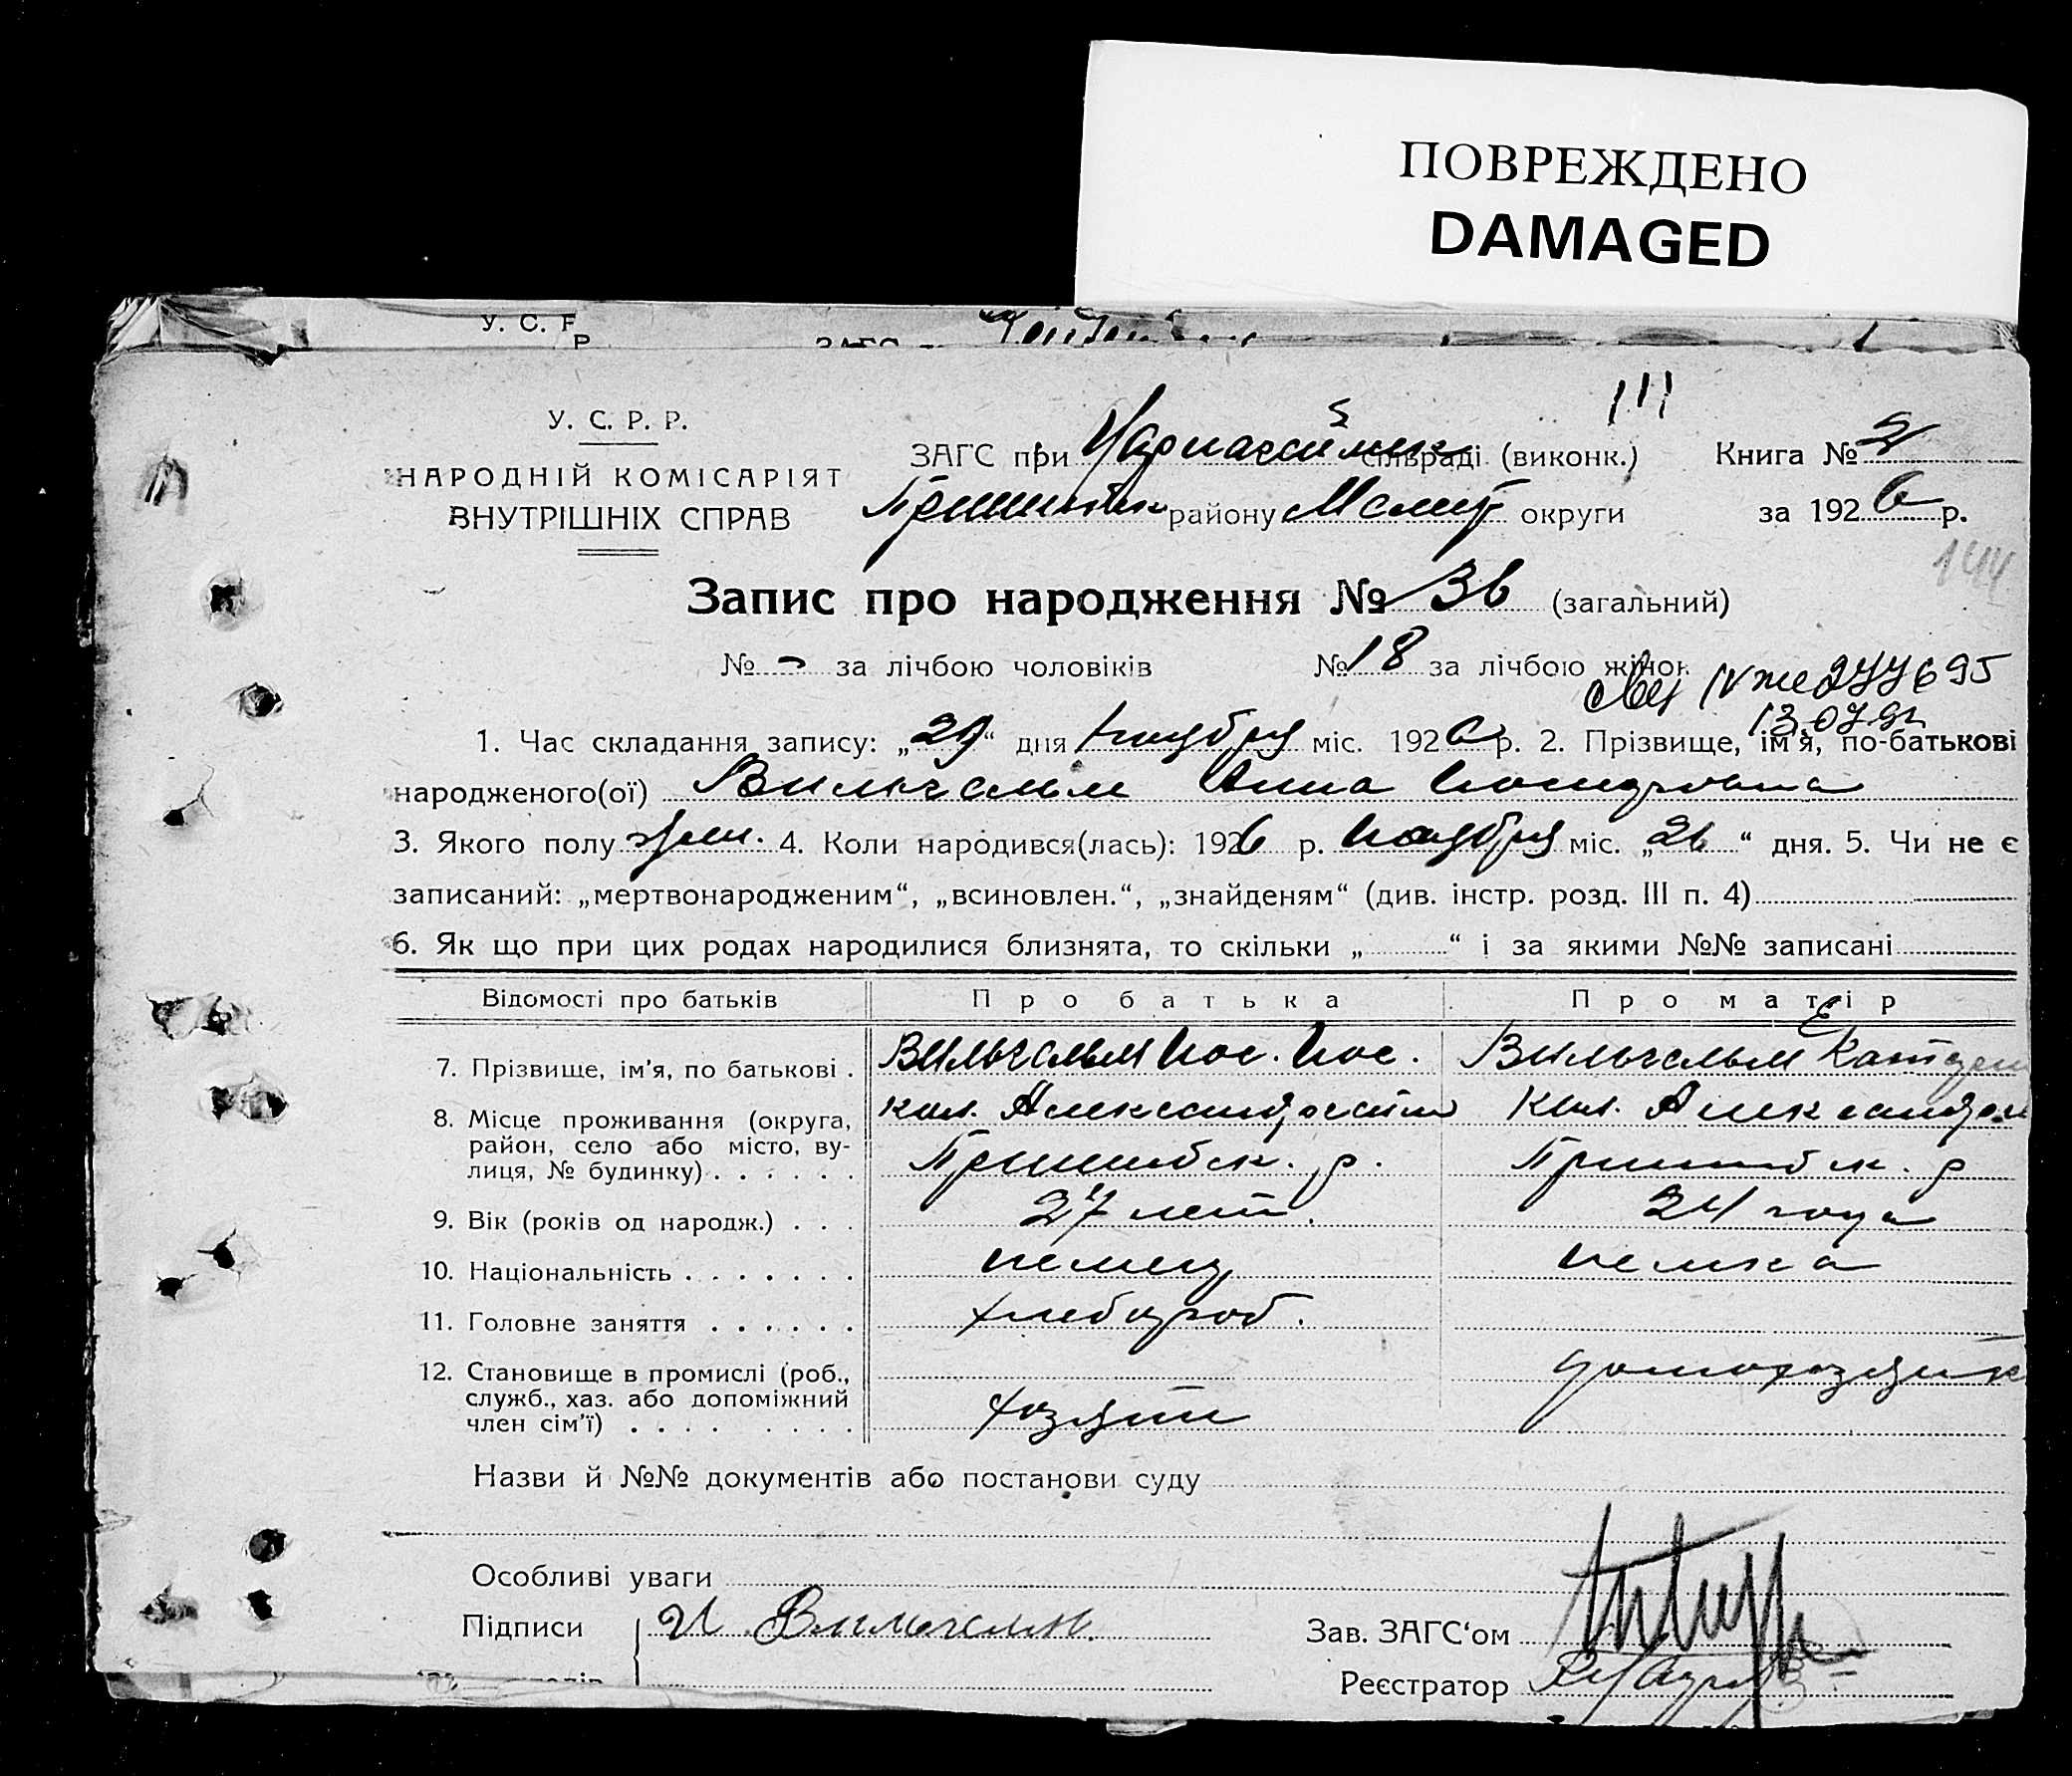 ПОВРЕЖДЕНО
DAMAGED
У. С. Р. Р.
НАРОДНІЙ КОМІСАРІЯТ
ВНУТРІШНІХ СПРАВ
ЗАГС при сільраді (виконк.) Книга № 2
району округи за 1926 р.
144
Запис про народження № 36 (загальний)
№ - за лічбою чоловіків № 18 за лічбою жінок
1. Час складання запису: „29“ дня Ноября міс. 1926 р. 2. Прізвище, ім'я, по-батькові
народженого(ої) Вильгельм Анна Иосифовна
3. Якого полу жен. 4. Коли народився(лась): 1926 р. Ноября міс. „26“ дня. 5. Чи не є
записаний: „мертвонародженим“, „всиновлен.“, „знайденям“ (див. інстр. розд. III п. 4)
6. Як що при цих родах народилися близнята, то скільки „ “ і за якими №№ записані
Відомості про батьків Про батька Про матір
7. Прізвище, ім'я, по батькові . Вильгельм Иос. Иос. Вильгельм
8. Місце проживання (округа, район, село або місто, вулиця, № будинку) . . . . . . кол. кол.
Пришибск. р. Пришибск. р
9. Вік (років од народж.) . . . 27 лет. 24 года
10. Національність . . . . . . . немец немка
11. Головне заняття . . . . . . хлебороб.
12. Становище в промислі (роб., служб., хаз. або допоміжний член сім'ї) . . . . . . . . хозяин
Назви й №№ документів або постанови суду
Особливі уваги
Підписи И Вильгельм. Зав. ЗАГС‘ом
Реєстратор